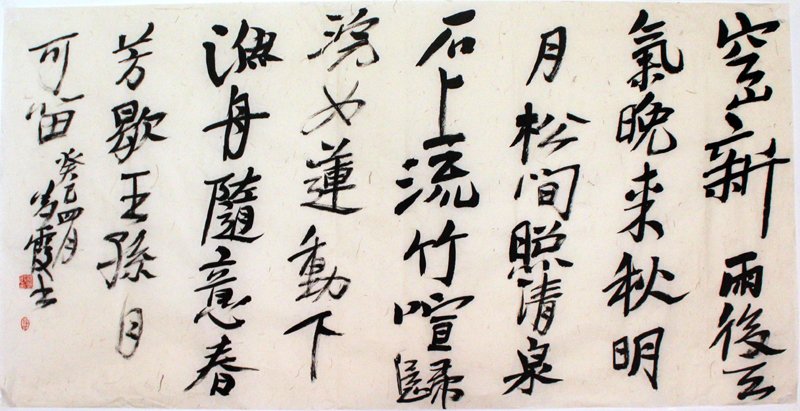 空山新雨後天
氣晚来秋明
月松间照清泉
石上流竹喧歸
浣女蓮動下
漁舟隨意春
芳歇王孫自
可留
癸巳四月
霞书